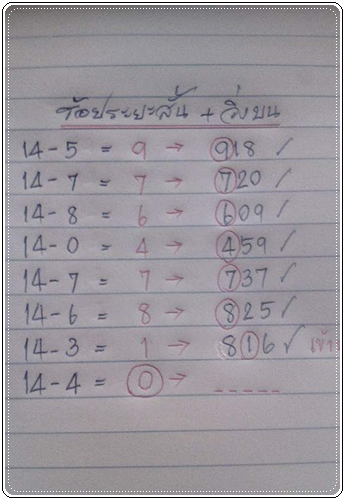 ร้อยระยะสั้น + วิ่งบน
14-5 = 9 → 918 ✓
14-7 = 7 → 720 ✓
14-8 = 6 → 609 ✓
14-0 = 4 → 459 ✓
14-7 = 7 → 737 ✓
14-6 = 8 → 825 ✓
14-3 = 1 → 816 ✓ เข้า
14-4 = 0 → -----